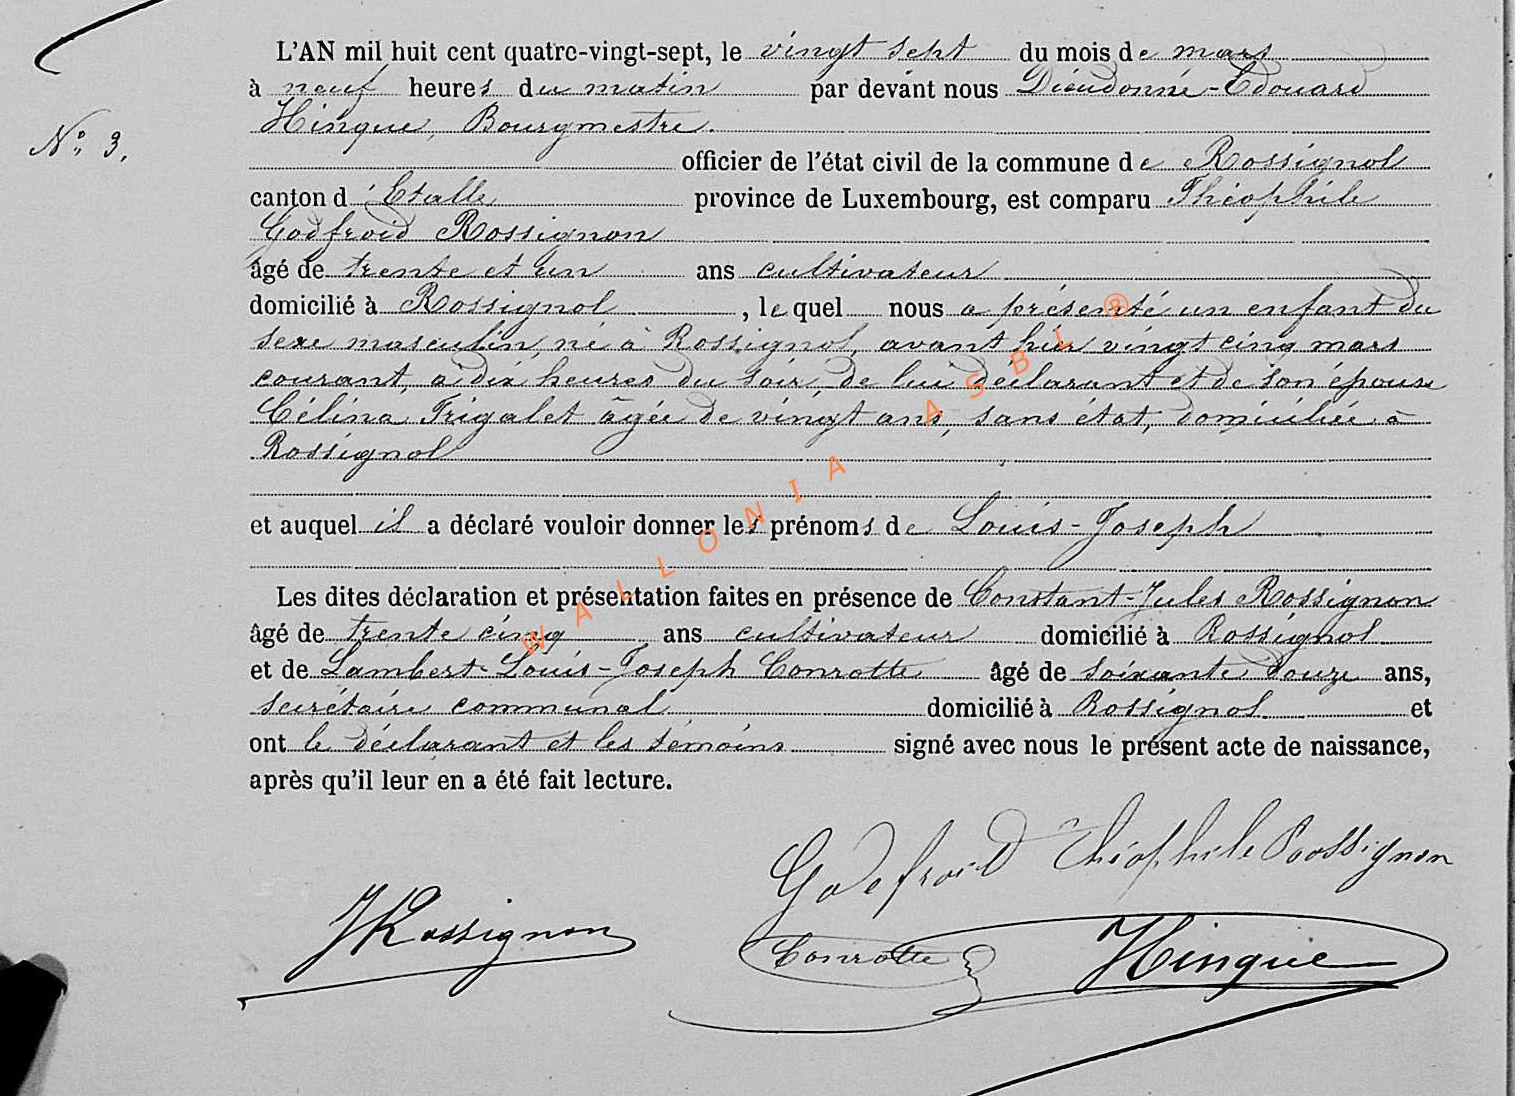 L'AN mil huit cent quatre-vingt-sept, le vingt sept du mois de mars
à neuf heures du matin par devant nous Dieudonné-Edouard
N° 3.
Hinque, Bourgmestre.
officier de l'état civil de la commune de Rossignol
canton d'Etalle province de Luxembourg, est comparu Théophile
Godfroid Rossignon
âgé de trente et un ans cultivateur
domicilié à Rossignol, lequel nous a présenté un enfant du
sexe masculin, né à Rossignol, avant hier vingt cinq mars
courant, à dix heures du soir, de lui déclarant et de son épouse
Célina Frigalet âgée de vingt ans, sans état, domiciliée à
Rossignol
et auquel il a déclaré vouloir donner les prénoms de Louis-Joseph
Les dites déclaration et présentation faites en présence de Constant-Jules Rossignon
âgé de trente cinq ans cultivateur domicilié à Rossignol
et de Lambert-Louis-Joseph Conrotte âgé de soixante douze ans,
secrétaire communal domicilié à Rossignol et
ont le déclarant et les témoins signé avec nous le présent acte de naissance,
après qu'il leur en a été fait lecture.
Godefroid Théophile Rossignon
JRossignon
Conrotte Hinque
WALLONIA ASBL ®